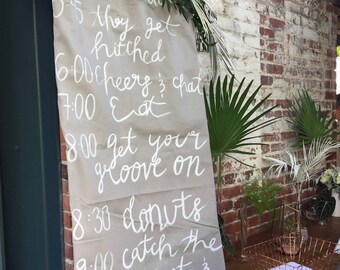 they get
hitched
6:00 Cheers & chat
7:00 Eat
8:00 get your
groove on
8:30 donuts
9:00 catch the